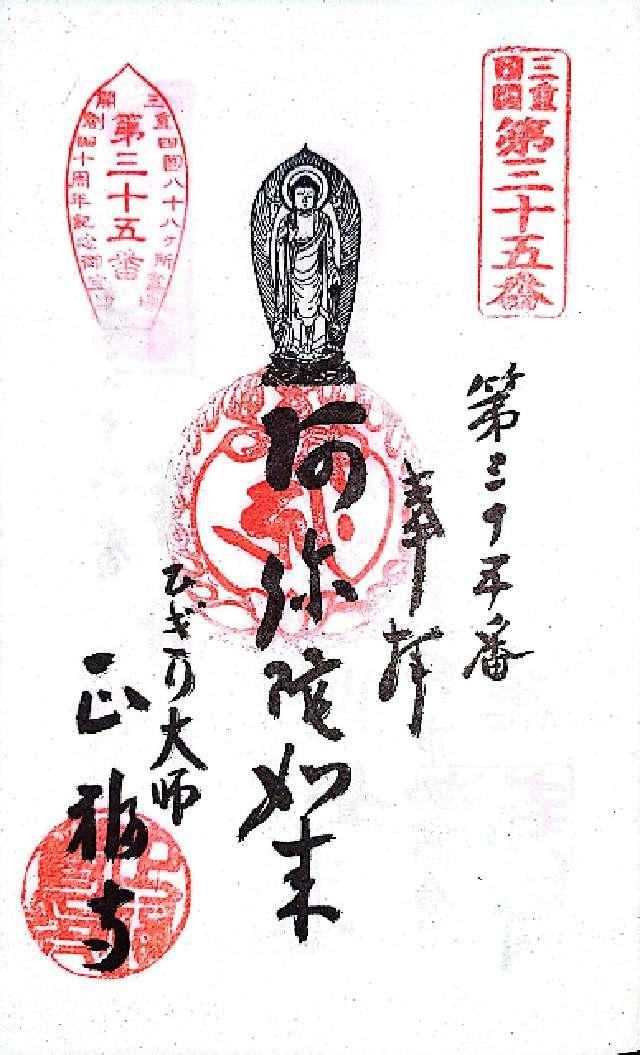 三重
四国
第三十五番
第三十五番
奉拝
阿弥陀如来
ひぎり大師
正福寺
三重四国八十八ヶ所霊場
第三十五番
開創四十周年記念御宝印